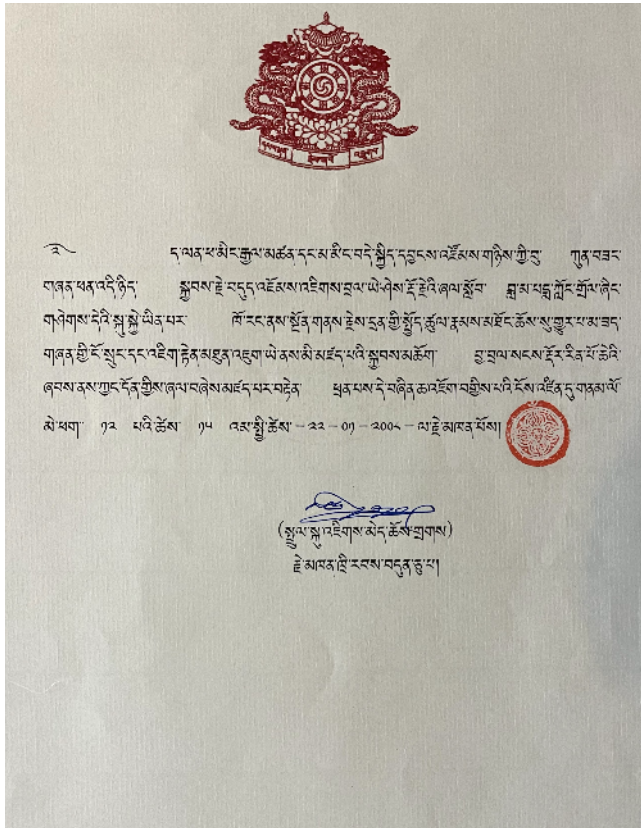 ༄ ད་ལན་ཕ་མིང་རྒྱལ་མཚན་དང་མ་མིང་བདེ་སྐྱིད་དབྱངས་འཛོམས་གཉིས་ཀྱི་བུ་ ཀུན་བཟང་
གཞན་ཕན་འདི་ཉིད་ སྐྱབས་རྗེ་བདུད་འཇོམས་འཇིགས་བྲལ་ཡེ་ཤེས་རྡོ་རྗེའི་ཞལ་སློབ་ བླ་མ་པདྨ་ཀློང་གྲོལ་ཞིང་
གཤེགས་དེའི་སྐུ་སྐྱེ་ཡིན་པར་ ཁོ་རང་ནས་སྔོན་གནས་རྗེས་དྲན་གྱི་སྤྱོད་ཚུལ་རྣམས་མཐོང་ཆོས་སུ་གྱུར་པ་མ་ཟད་
གཞན་གྱི་ངོ་སྲུང་དང་འཇིག་རྟེན་མཐུན་འཇུག་ཡེ་ནས་མི་མཛད་པའི་སྐྱབས་མཆོག་ བྱ་བྲལ་སངས་རྡོར་རིན་པོ་ཆེའི་
ཞབས་ནས་ཀྱང་དོན་གྱིས་ཞལ་བཞེས་མཛད་པར་བརྟེན་ ཕྲན་པས་དེ་བཞིན་ཆ་འཇོག་བགྱིས་པའི་ངོས་འཛིན་དུ་གནམ་ལོ་
མེ་ཕག་ ༡༢ པའི་ཚེས་ ༡༥ འམ་སྤྱི་ཚེས་ – ༢༢ – ༠༡ – ༢༠༠༨ – ལ་རྗེ་མཁན་པོས།
(སྤྲུལ་སྐུ་འཇིགས་མེད་ཆོས་གྲགས)
རྗེ་མཁན་ཁྲི་རབས་བདུན་ཅུ་པ།